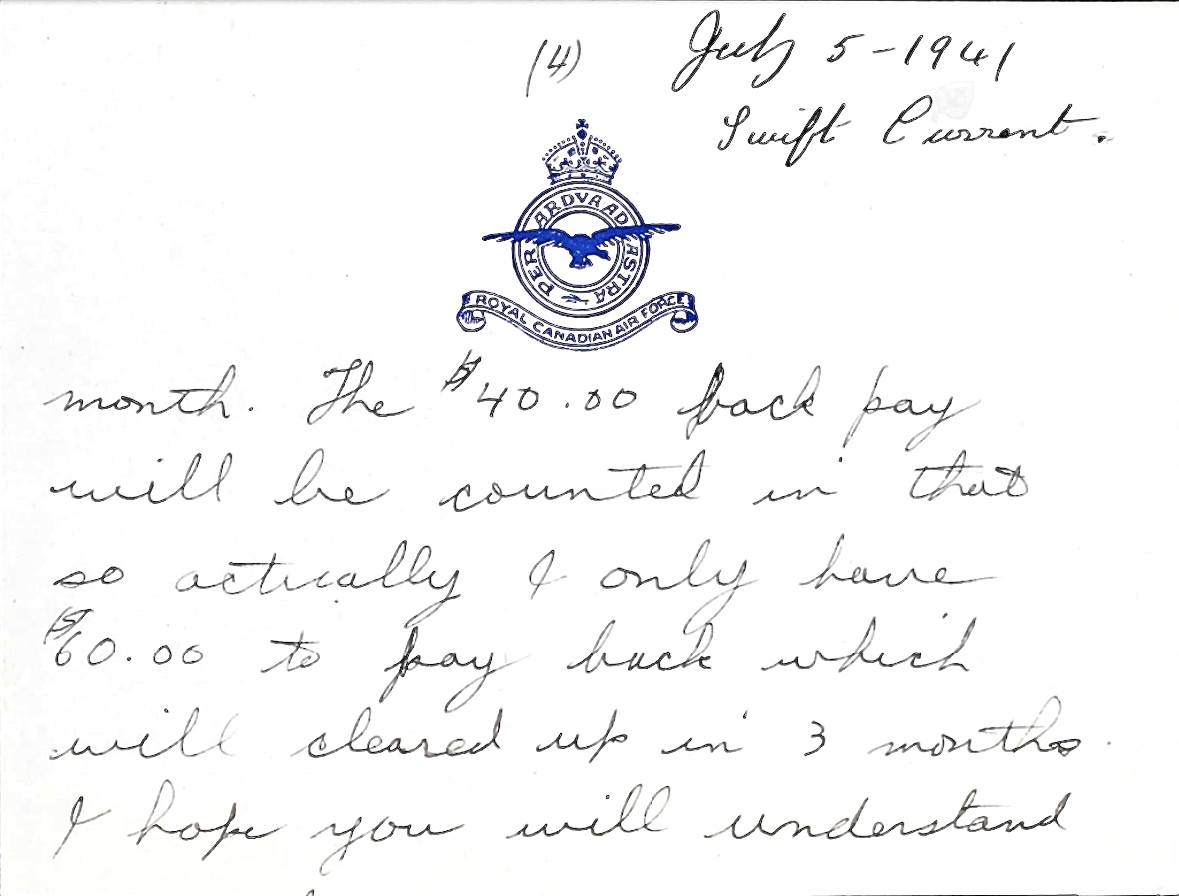 (4) July 5-1941
Swift Current.
PER ARDVA AD ASTRA
ROYAL CANADIAN AIR FORCE
month. The $40.00 back pay
will be counted in that
so actually I only have
$60.00 to pay back which
will cleared up in 3 months.
I hope you will understand